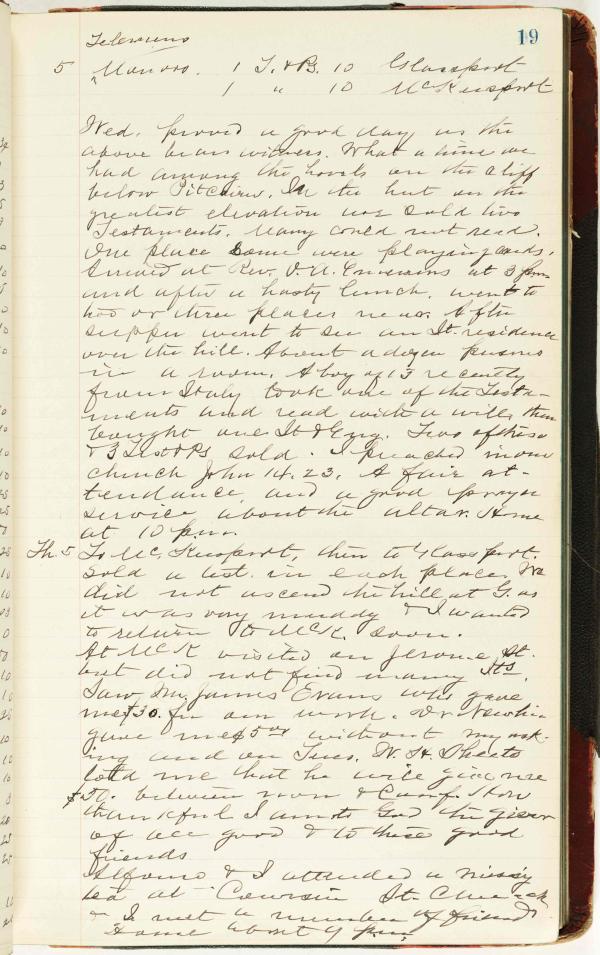 19
5 Monroe. 1 T. & Ps. 10 Glassport
1 " 10 McKeesport
Wed. proved a good day as the
above bears witness. What a time we
had among the hovels on the cliff
below Pitcairn. In the hut on the
greatest elevation we sold two
Testaments. Many could not read.
One place some were playing cards.
Arrived at Rev. V. A. at 3 p.m
and after a hasty lunch, went to
two or three places near. After
supper went to see an It. residence
over the hill. About a dozen persons
in a room. A boy of 13 recently
from Italy took one of the Testa-
ments and read with a will, then
bought one It & Eng. Two of these
& 3 Test & Ps sold. I preached in our
church John 14.23. A fair at-
tendance, and a good prayer
service about the altar. Home
at 10 p.m.
Th. 5 To McKeesport, then to Glassport.
Sold a test. in each place. We
did not ascend the hill at G. as
it was very muddy & I wanted
to return to McK. soon.
At McK visited on Jerome St.
but did not find many Its.
Saw Mr. James Evans who gave
me $30. for our work. Dr.
gave me $5.00 without my ask-
ing and on Tues. W. H. Sheets
told me that he will give me
$50. between now & Conf. How
thankful I am to God the giver
of all good & to these good
friends
Alfonso & I attended a
tea at Coursin St. Church
& I met a number of friends
Home about 9 p.m.